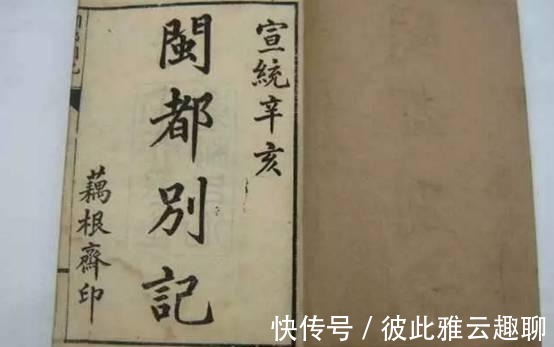 宣統辛亥
閩都別記
藕根齋印
快传号 / 彼此雅云趣聊